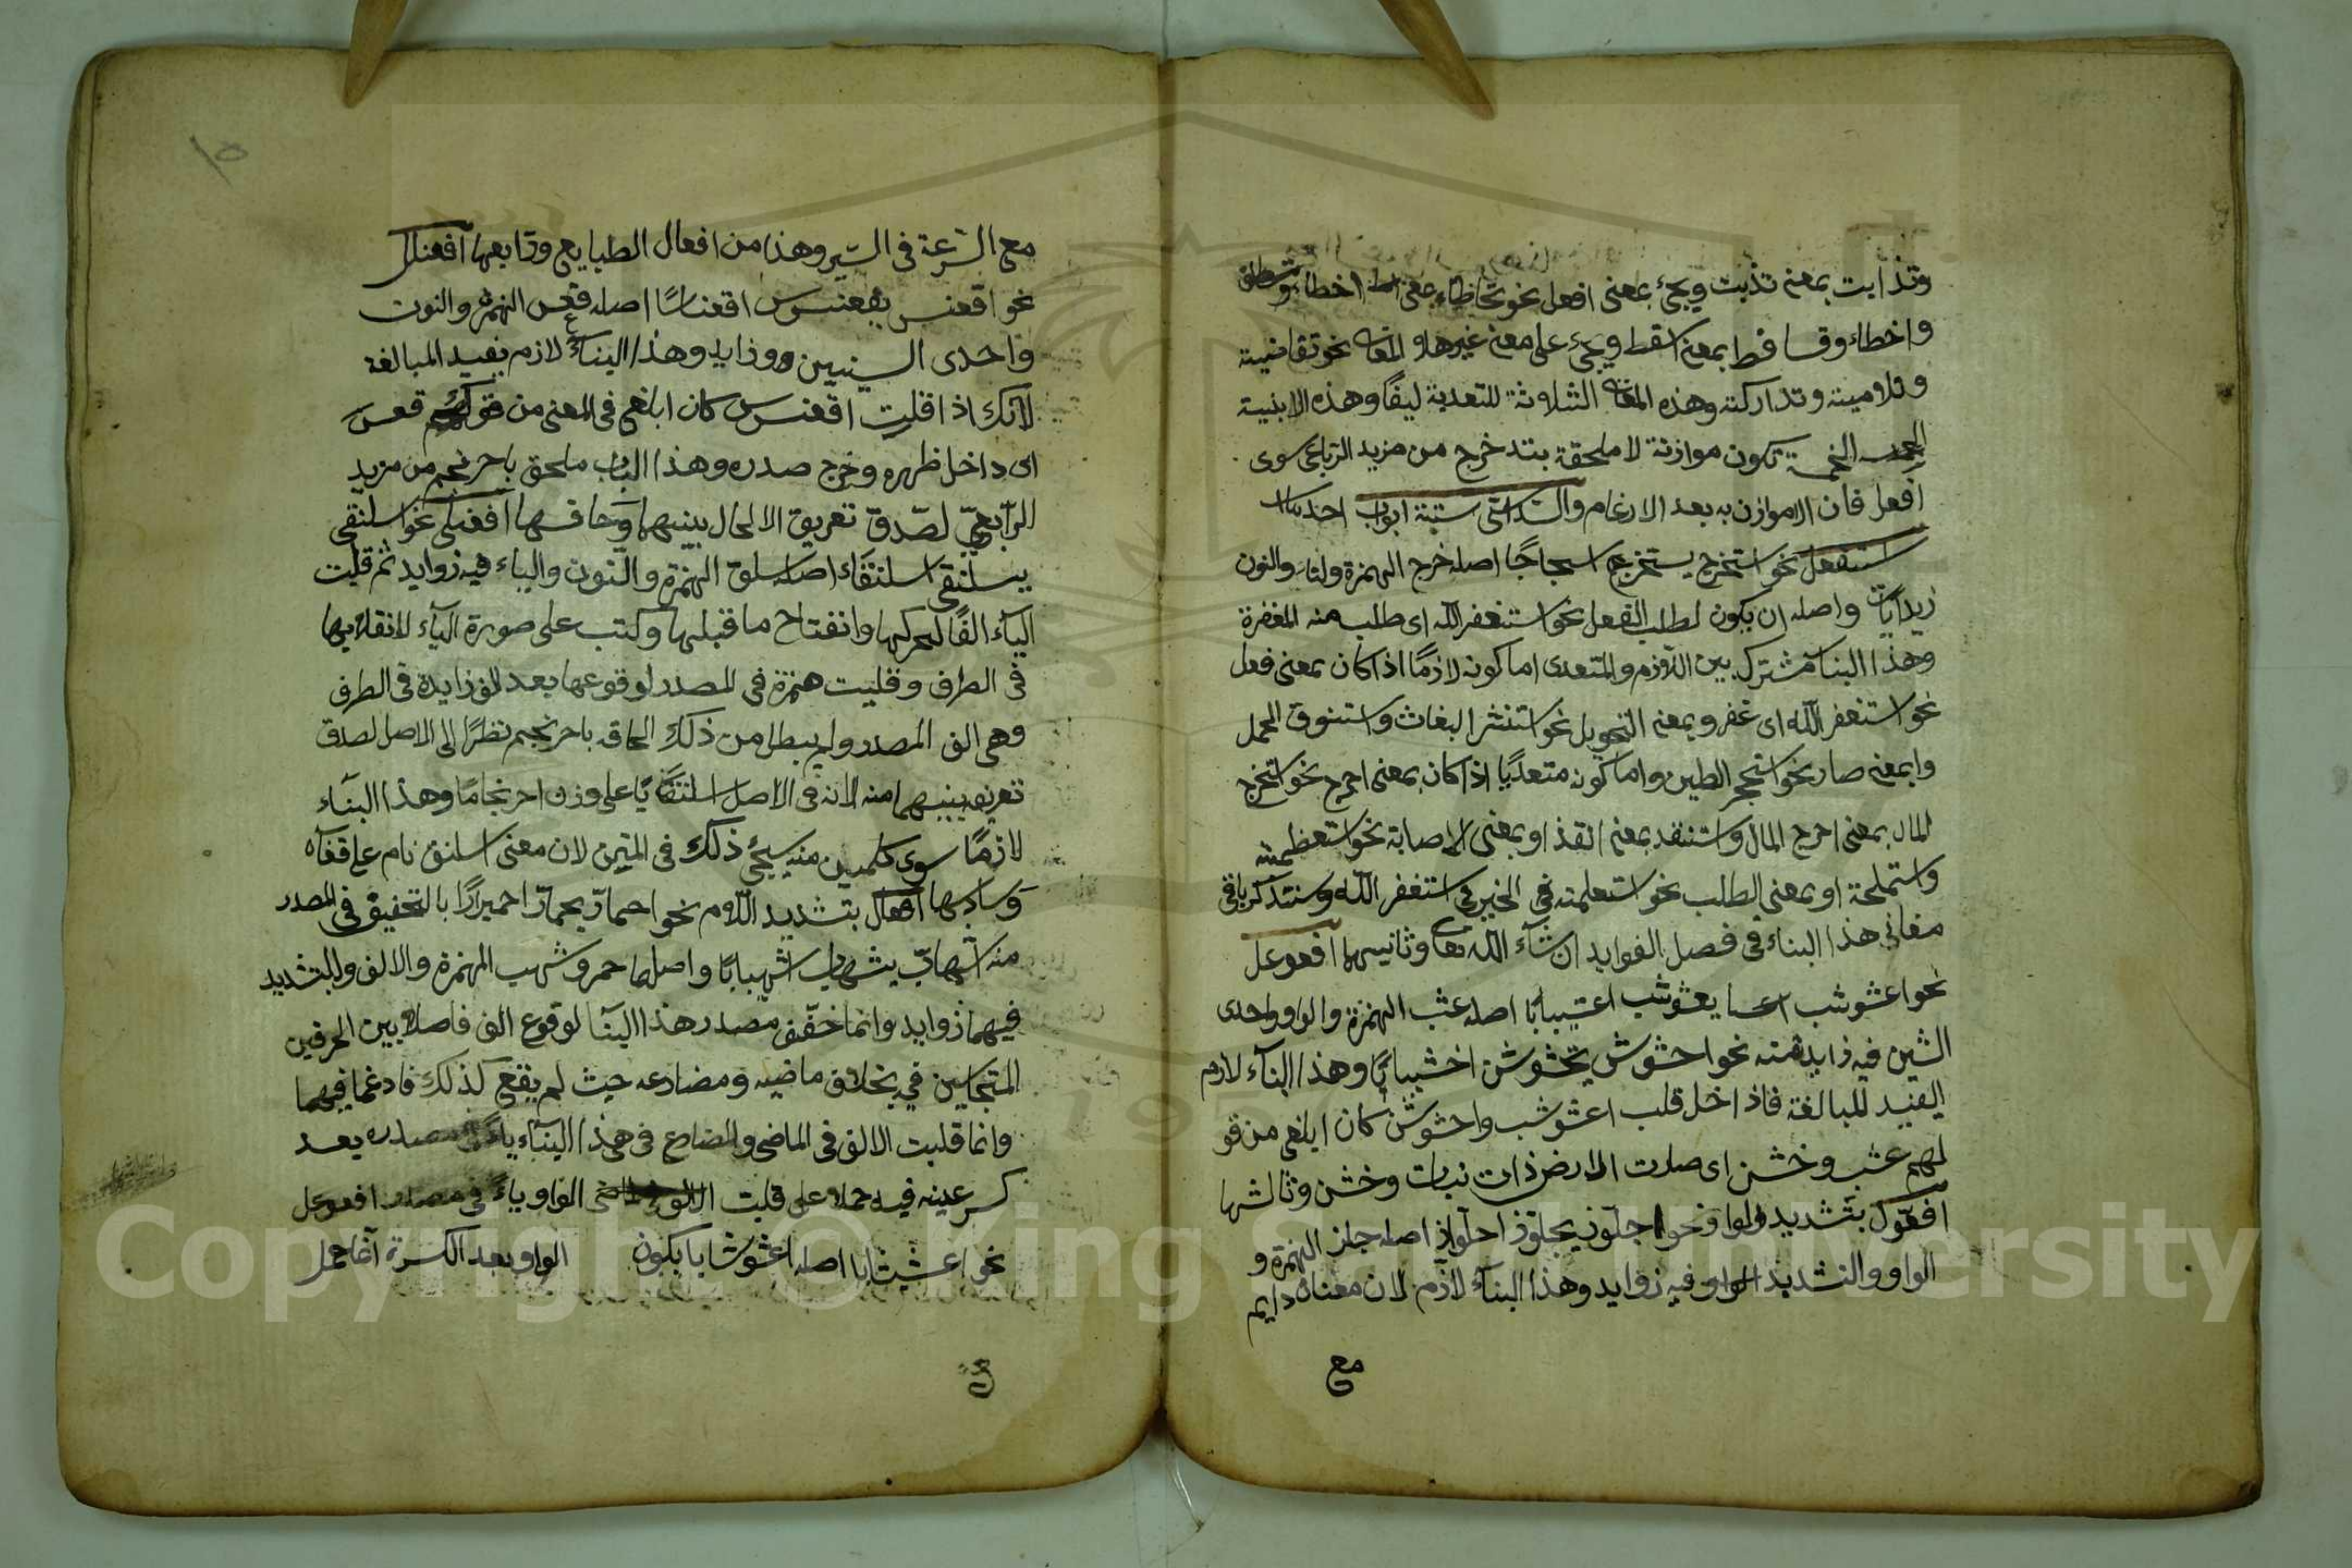 وتذايت بمعنى تذبت ويجئ بمعنى افعل نحو تخاطاء بمعنى اخطاء
واخطاء وتساقط بمعنى اسقط ويجئ على معنى غيرها والمعان نحو تقاضيته
وتلاميته وتداركته وهذه المعان الثلاثة للتعدية ايضًا وهذه الابنية
الخمسة تكون موازنة لا ملحقة بتدحرج من مزيد الرباعى سوى
افعل فان الاموازن به بعد الادغام والسداسى ستة ابواب احدها
استفعل نحو استخرج يستخرج اصله خرج الهمزة والتاء والنون
زيدات واصله ان يكون لطلب الفعل نحو استغفر الله اى طلب منه المغفرة
وهذا البنا مشترك بين اللازم والمتعدى اما كونه لازمًا اذا كان بمعنى فعل
نحو استغفر الله اى غفر وبمعنى التحويل نحو استنشر البغاث واستنوق الجمل
وبمعنى صار نحو استحجر الطين واما كونه متعديًا اذا كان بمعنى اخرج نحو استخرج
المال بمعنى اخرج المال واستنقد بمعنى انقذ او بمعنى الاصابة نحو استعظمته
واستملحة او بمعنى الطلب نحو استعلمته فى الخبر فى استغفر الله وستذكر باقى
معانى هذا البناء فى فصل الفوايد ان شآء الله تعا وثانيها افعوعل
نحو اعشوشب يعشوشب اعشيبابًا اصله عشب الهمزة والواو واحدى
الشين فيه زايد منه نحو اخشوشن يخشوشن اخشيبابًا وهذا البنآء لازم
يفيد للمبالغة فاذا دخل قلب اعشوشب واخشوشن كان ابلغ من قو
لهم عشب وخشن اى صارت الارض ذات نبات وخشن وثالثها
افعوّل بتشديد الواو نحو اجلوّذ يجلوّذ اجلوّاذ اصله جلز الهمزة و
الواو والتشديد الواو فيه زوايد وهذا البنآء لازم لان معناه دايم
مع
١٥
مع السّرعة فى السّير وهذا من افعال الطبايع ورابعها افعنلل
نحو اقعنس يقعنسس اقعناسًا اصله قعس الهمزة والنون
واحدى السينين زوايد وهذا البناء لازم يفيد المبالغة
لانك اذا قلت اقعنسس كان ابلغ فى المعنى من قولهم قعس
اى داخل ظهره وخرج صدره وهذا الباب ملحق باحرنجم من مزيد
الرّباعىّ لصّدق تعريق الالحاق بينهما وخامسها افعنلى نحو اسلنقى
يسلنقى اسلنقاء اصله سلق الهمزة والنون والياء فيه زوايد ثم قلبت
اليآء الفًا لتحركها وانفتاح ما قبلها وكتب على صورة اليآء لانقلابها
فى الطرف وقلبت همزة فى المصدر لوقوعها بعد الف زايدة فى الطرف
وهى الف المصدر ولم يبطل من ذلك الحاقه باحرنجم نظرًا الى الاصل لصدق
تعريفه بينهما منه لانه فى الاصل اسلنقايًا على وزن احرنجامًا وهذا البنآء
لازمًا سوى كلمتين منه سيجئ ذلك فى المتن لان معنى اسلنقى نام على قفاه
وسادسها افعالّ بتشديد اللّام نحو احمارّ يحمارّ احميرارًا بالتخفيف فى المصدر
منه اشهابّ يشهابّ اشهيبابًا واصلها حمر وشهب الهمزة والالف والتشديد
فيهما زوايد وانما خفّف مصدر هذا البنآ لوقوع الف فاصلا بين الحرفين
المتجانسين فيه بخلاف ماضيه ومضارعه حيث لم يقع كذلك فادغما فيهما
وانما قلبت الالف فى الماضى والمضارع فى هذا البنآء ياءً مصدره بعد
كسر عينه فيه حملا على قلبت الواو ياءً فى مصدر افعوعل
نحو اعشيشابا اصله اعشوشابا بكون الواو بعد الكسرة آنما حمل